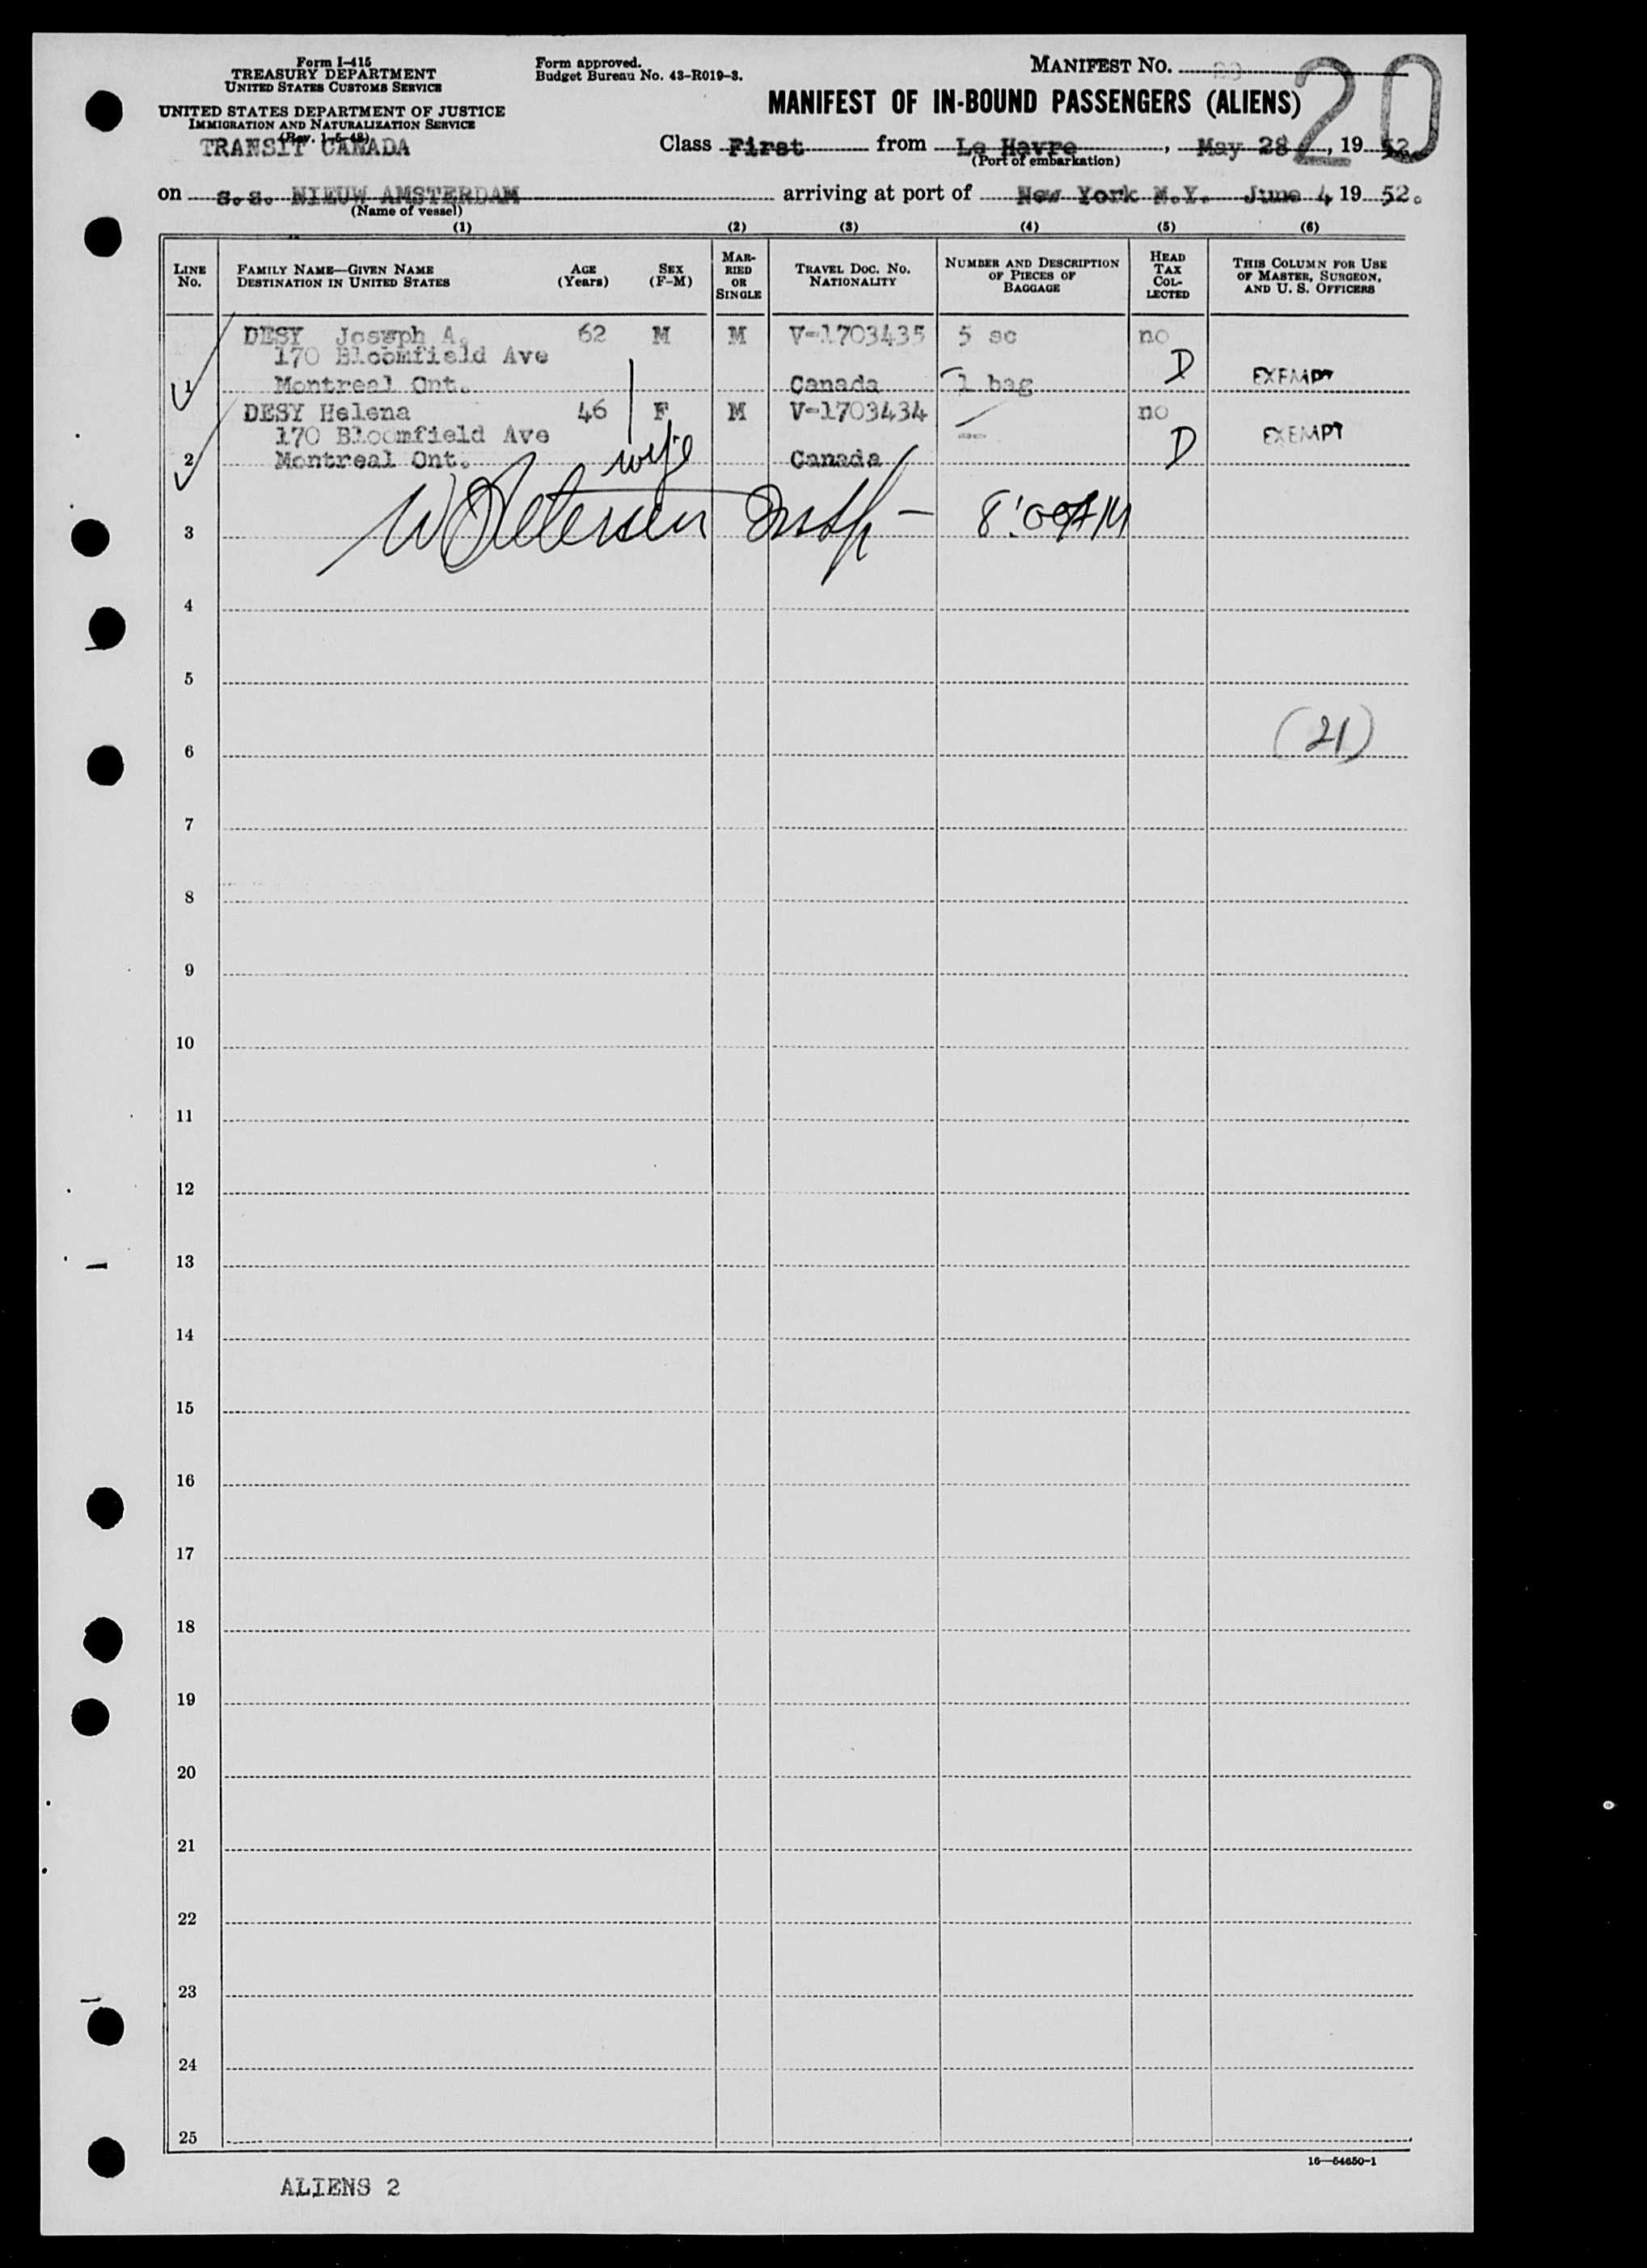 Form I-415
TREASURY DEPARTMENT
UNITED STATES CUSTOMS SERVICE
UNITED STATES DEPARTMENT OF JUSTICE
IMMIGRATION AND NATURALIZATION SERVICE
(Rev. 1-5-48)
TRANSIT CANADA
Form approved.
Budget Bureau No. 43-R019-3.
MANIFEST NO. 20
MANIFEST OF IN-BOUND PASSENGERS (ALIENS)
Class First from Le Havre, May 28, 1952
(Port of embarkation)
on s.s. NIEUW AMSTERDAM arriving at port of New York N.Y. June 4, 1952.
(Name of vessel)
(1) (2) (3) (4) (5) (6)
LINE NO. FAMILY NAME—GIVEN NAME DESTINATION IN UNITED STATES AGE (Years) SEX (F-M) MARRIED OR SINGLE TRAVEL DOC. NO. NATIONALITY NUMBER AND DESCRIPTION OF PIECES OF BAGGAGE HEAD TAX COLLECTED THIS COLUMN FOR USE OF MASTER, SURGEON, AND U. S. OFFICERS
DESY Joseph A. 62 M M V-1703435 5 sc no
170 Bloomfield Ave D
1 Montreal Ont. Canada 1 bag EXEMPT
DESY Helena 46 F M V-1703434 no
170 Bloomfield Ave — D EXEMPT
2 Montreal Ont. wife Canada
3 W Petersen Insp – 8:00AM
4
5
6 (21)
7
8
9
10
11
12
13
14
15
16
17
18
19
20
21
22
23
24
25
16—54650-1
ALIENS 2